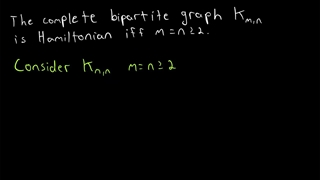 The complete bipartite graph K_{m,n}
is Hamiltonian iff m=n≥2.
Consider K_{n,n} m=n≥2